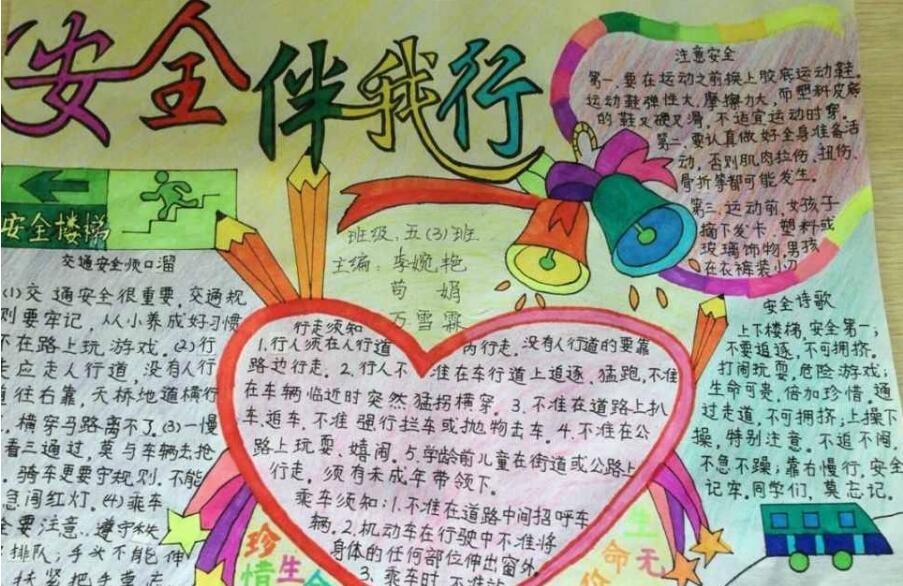 安全伴我行
安全楼梯
班级:五(3)班
主编:李婉艳
苟 娟
万雪霖
注意安全
第一.要在运动之前换上胶底运动鞋.
运动鞋弹性大,摩擦力大,而塑料皮
的鞋又硬又滑,不适宜运动时穿.
第二.要认真做好全身准备活
动,否则肌肉拉伤、扭伤、
骨折等都可能发生.
第三.运动前,女孩子
摘下发卡、塑料或
玻璃饰物,男孩
在衣裤装小刀
交通安全顺口溜
(1)交通安全很重要,交通规
则要牢记,从小养成好习惯
不在路上玩游戏.(2)行
走应走人行道,没有人行
道往右靠,天桥地道横行
横穿马路离不了.(3)一慢
看三通过,莫与车辆去抢
骑车更要守规则,不能
急闯红灯.(4)乘车
要注意,遵守秩
排队;手头不能伸
扶紧把手莫
行走须知
1.行人须在人行道内行走,没有人行道的要靠
路边行走.2.行人不准在车行道上追逐、猛跑,不准
在车辆临近时突然猛拐横穿.3.不准在道路上扒
车.追车,不准强行拦车或抛物击车.4.不准在公
路上玩耍、嬉闹.5.学龄前儿童在街道或公路上
行走,须有未成年带领下.
乘车须知:1.不准在道路中间招呼车
辆.2.机动车在行驶中不准将
身体的任何部位伸出窗外.
3.乘车时,不准站
安全诗歌
上下楼梯,安全第一;
不要追逐,不可拥挤.
打闹玩耍,危险游戏;
生命可贵,倍加珍惜.通
过走道,不可拥挤;上操下
操,特别注意.不追不闹,
不急不躁;靠右慢行,安全
记牢.同学们,莫忘记.
珍惜生命
生命无